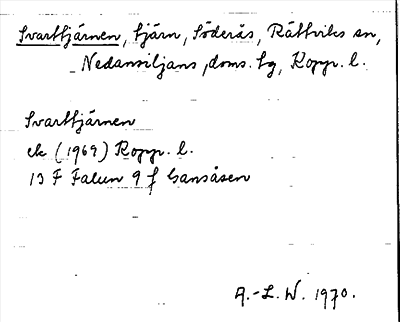 Svarttjärnen, tjärn, Söderås, Rättviks sn,
Nedansiljans doms. tg, Kopp. l.
Svarttjärnen
ek (1969) Kopp. l.
13 F Falun 9 f Gansåsen
A.-L. W. 1970.